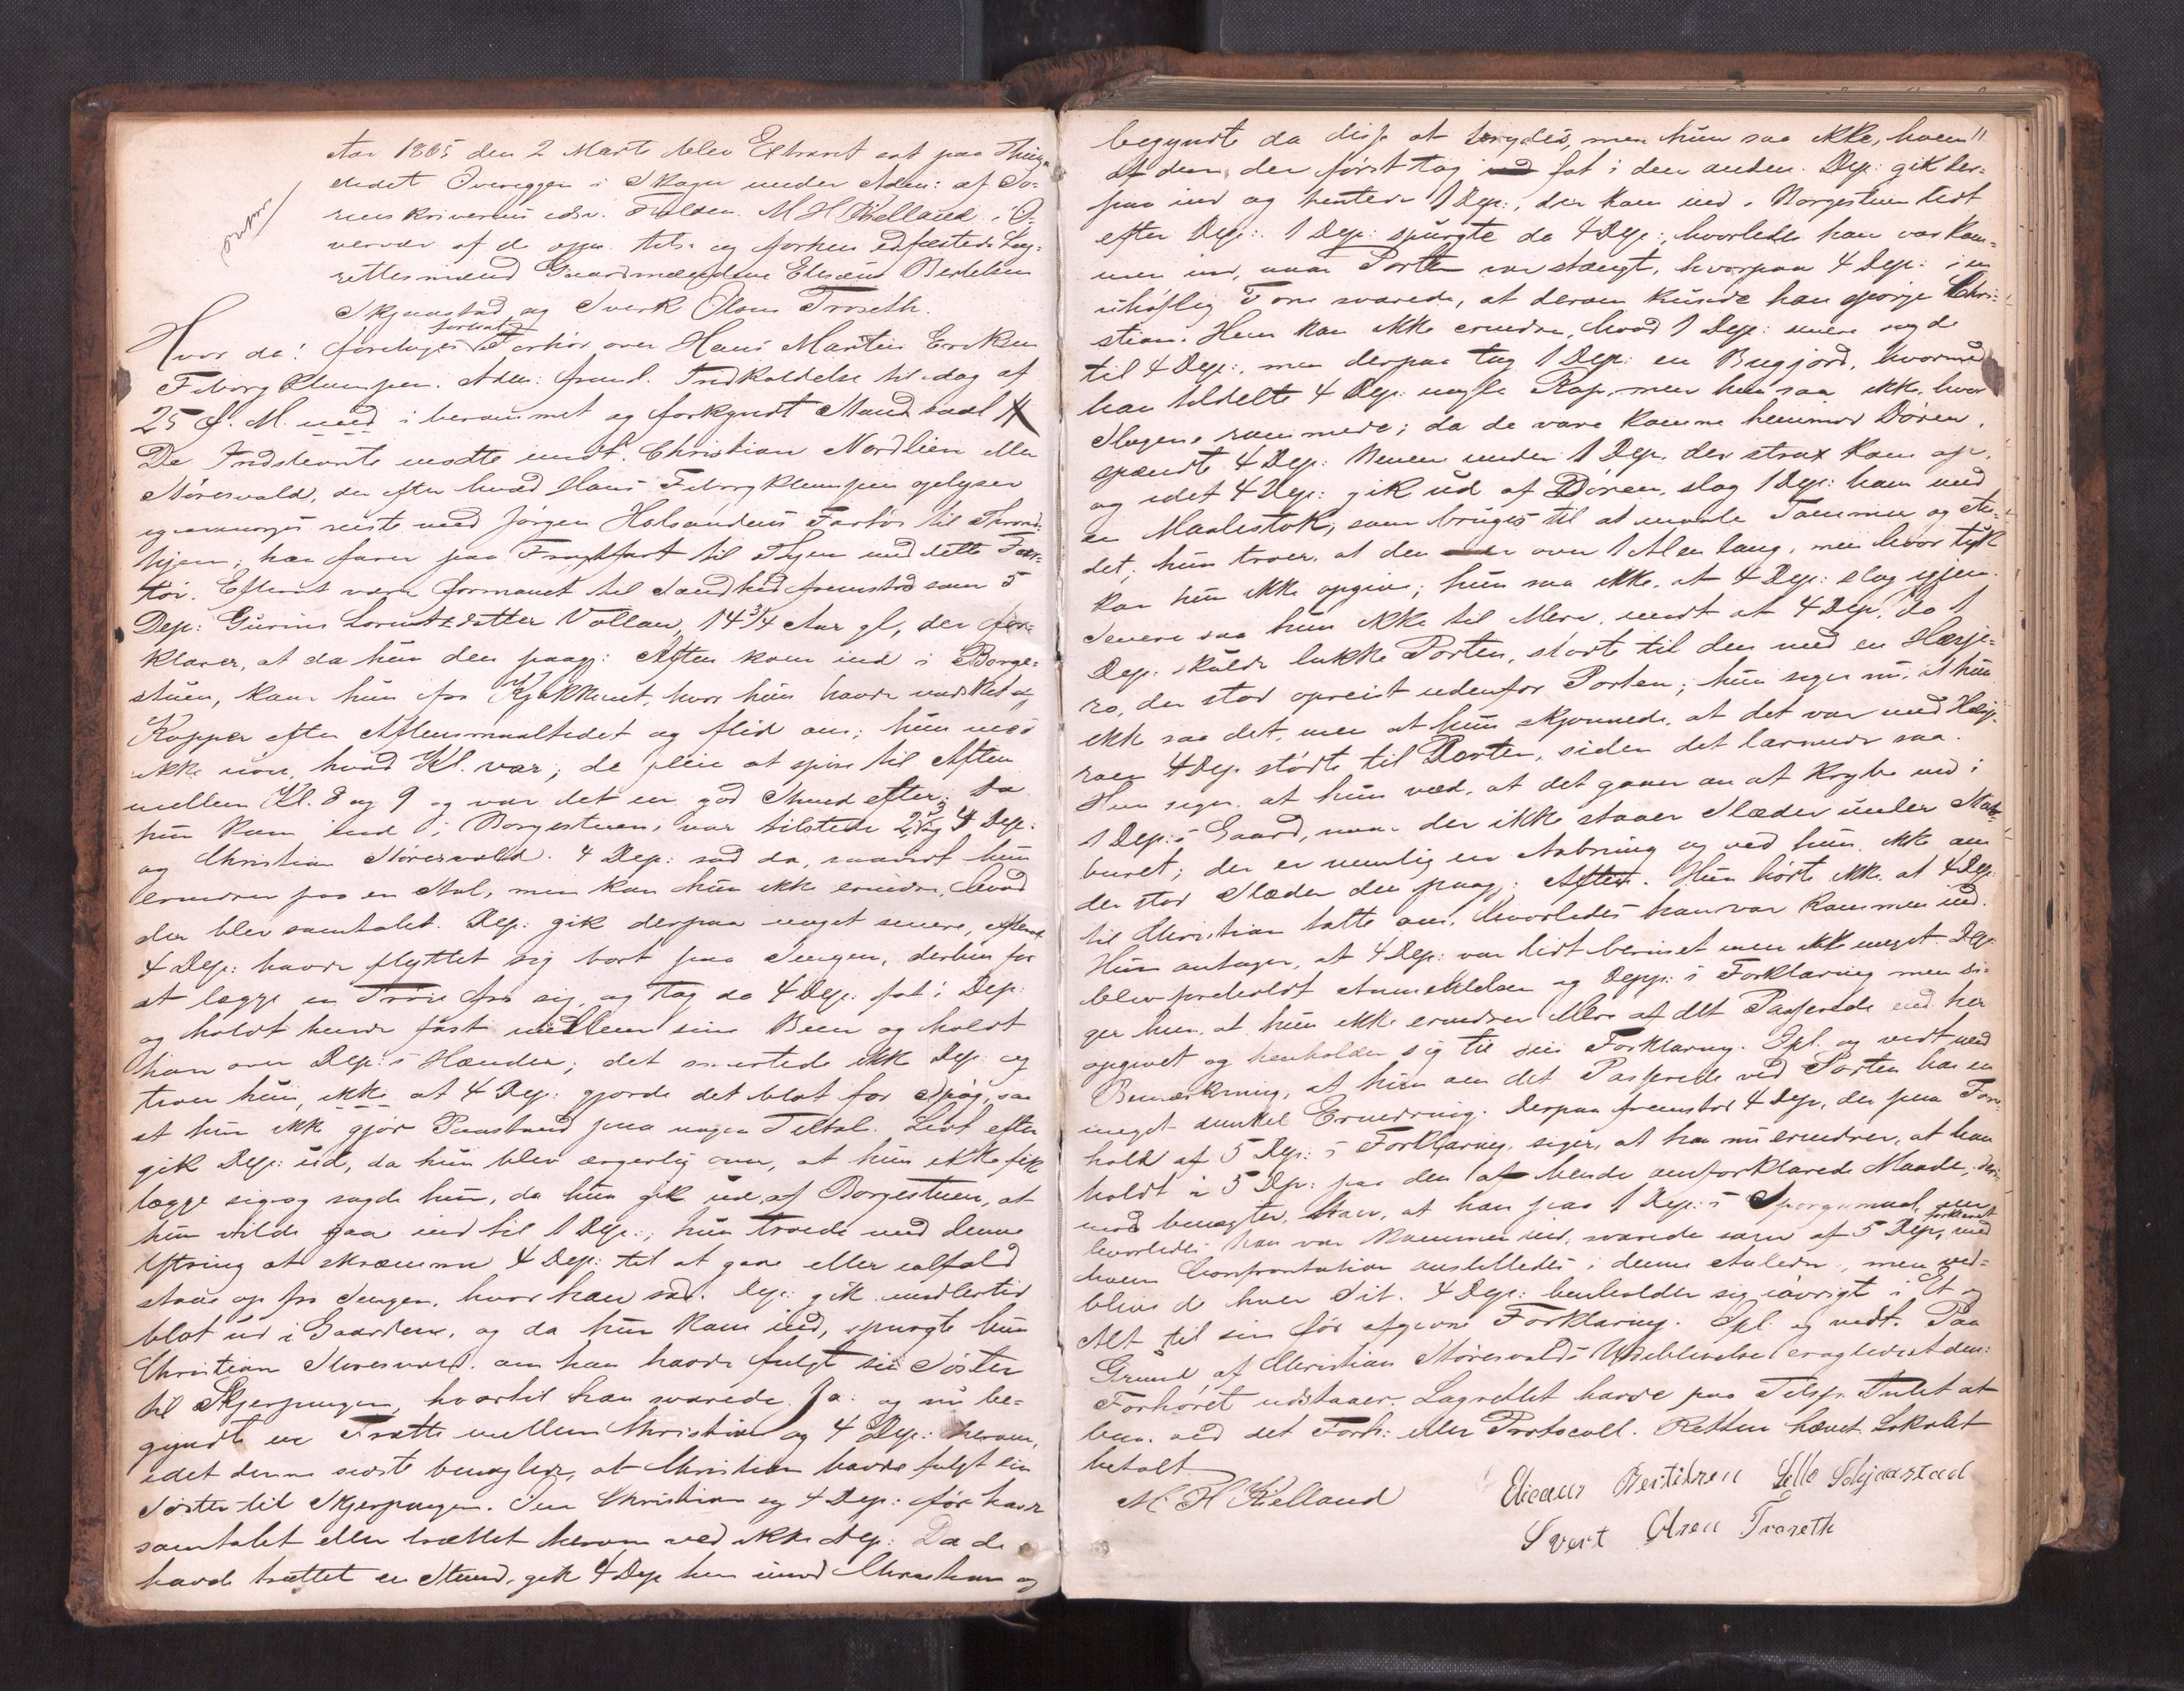 Aar 1885 den 2 Marts blev Extraret sat paa Thing-
stedet Overeggen i Skogn under Aden: af So-
renskriverens edsv. Fuldm. M H Kielland i O-
vervær af de opn. tils. og forhen edfæstede Lag-
rettesmænd Gaardmændene Eliseus Bertelsen
Skjerstad og Sverk Olsen Troseth.
Hvor da: foretoges fortsat Forhør over Hans Martin Eriksen
Fiborgklumpen. Aden: freml. Indkaldelse til idag af
25 f. M. med i berammet og forkyndt Stand saal
De Indstevnte mødte undt. Christian Nordlien eller
Nøresvald, der efter hvad Hans Fiborgklumpen oplyser
igaarmorges reiste med Jørgen Holsandens Fartøi til Thrond-
hjem; han farer paa Fragtfart til Byen med dette Far-
tøi. Efterat være formanet til Sandhed fremstod som 5
Dep: Gurine Lorentzdatter Vollan, 14 3/4 Aar gl, der for-
klarer, at da hun den paag: Aften kom ind i Borge-
stuen, kom hun fra Kjøkkenet, hvor hun havde vasket af
Kopper efter Aftensmaaltidet og flid om; hun ved
ikke nøie, hvad Kl. var; de pleie at spise til Aften
mellem Kl. 8 og 9 og var det en god Stund efter; Da
hun kom ind i Borgestuen, var tilstede 2, 3 og 4 Dep:
og Christian Nøresvald. 4 Dep: sad da, saavidt hun
erindrer paa en Stol, men kan hun ikke erindre, hvad
der blev samtalet. Dep: gik derpaa noget senere, efterat
4 Dep: havde flyttet sig bort paa Sengen, derhen for
at lægge en Trøie fra sig, og tog da 4 Dep: fat i Dep:
og holdt hende fast mellem sine Been og holdt
han om Dep:s Hænder; det smertede ikke Dep: og
troer hun ikke at 4 Dep: gjorde det blot for Spøg, saa
at hun ikke gjør Paastand paa nogen Tiltale. Lidt efter
gik Dep: ud, da hun blev ærgerlig over, at hun ikke fik
lægge sig og sagde hun, da hun gik ud af Borgestuen, at
hun vilde gaa ind til 1 Dep:, hun troede med denne
Yttring at skræmme 4 Dep: til at gaae eller ialfald
staae op fra Sengen, hvor han sad. Dep: gik imidlertid
blot ud i Gaarden, og da hun kom ind, spurgte hun
Christian Nøresvald om han havde fulgt sin Søster
til Skjerpingen, hvortil han svarede Ja. og nu be-
gyndte en Trætte mellem Christian og 4 Dep: herom,
idet denne sidste benægtede, at Christian havde fulgt sin
Søster til Skjerpingen. Om Christian og 4 Dep: før havde
samtalet eller trættet herom ved ikke Dep: Da de
havde trættet en Stund, gik 4 Dep hen imod Christian og
begyndte da disse at brydes, men hun saa ikke, hvem
af dem, der først tog fat i den anden. Dep: gik der-
paa ind og hentede 1 Dep:, der kom ind i Borgestuen lidt
efter Dep:. 1 Dep: spurgte da 4 Dep:, hvorledes han var kom-
men ind, naar Porten var stængt, hvorpaa 4 Dep: i en
uhøflig Tone svarede, at derom kunde han spørge Chri-
stian. Hun kan ikke erindre, hvad 1 Dep: mere sagde
til 4 Dep:, men derpaa tog 1 Dep: en Bugjord, hvormed
han tildelte 4 Dep: nogle Rap, men hun saa ikke, hvor
Slagene rammede; da de vare komne henimod Døren,
spændte 4 Dep: Benene under 1 Dep, der strax kom op,
og idet 4 Dep: gik ud af Døren, slog 1 Dep: ham med
en Maalestok, som bruges til at maale Tømmer og
det; hun troer, at den er over 1 Alen lang, men hvor tyk
kan hun ikke opgive; hun saa ikke, at 4 Dep: slog igjen.
Senere saa hun ikke til Mere, undt at 4 Dep, da 1
Dep. skulde lukke Porten, stødte til den med en Hæsje-
ro, der stod opreist udenfor Porten; hun siger nu, at hun
ikke saa det, men at hun skjønnede, at det var med Hæsje-
roen 4 Dep stødte til Porten, siden det larmede saa.
Hun siger, at hun ved, at det gaaer an at krybe ind i
1 Dep:s Gaard, naar der ikke staaer Slæder under Stab-
buret; der er nemlig en Aabning og ved hun ikke om
der stod Slæder den paag: Aften. Hun hørte ikke, at 4 Dep:
til Christian talte om, hvorledes han var kommen ind.
Hun antager, at 4 Dep: var lidt beruset men ikke meget. Dep:
blev foreholdt Anmeldelsen og Depp:s Forklaring men si-
ger hun, at hun ikke erindrer Mere af det Passerede end her
opgivet og henholder sig til sin Forklaring. Opl. og vedt med
Bemærkning, at hun om det Passerede ved Porten har en
meget dunkel Erindring. Derpaa fremstod 4 Dep, der paa Fore-
hold af 5 Dep:s Forklaring siger, at han nu erindrer, at han
holdt i 5 Dep: paa den af hende omforklarede Maade, der-
imod benægter han, at han paa 1 Dep:s Spørgsmaal om
hvorledes han var kommen ind, svarede som af 5 Dep, forklaret med
hvem Confrontation anstilledes i denne Anledn., men ved-
blive de hver Sit. 4 Dep: henholder sig iøvrigt i Et og
Alt til sin før afgivne Forklaring. Opl. og vedt. Paa
Grund af Christian Nøresvalds Udeblivelse
Forhøret udstaaer. Lagrettet havde paa Tilsp. Intet at
bem. ved det Forh: eller Protocoll. Retten hævet. Lokalet
betalt.
M. H Kielland
Eliseus Bertilsen Lille Skjerstad
Svert Olsen Troseth